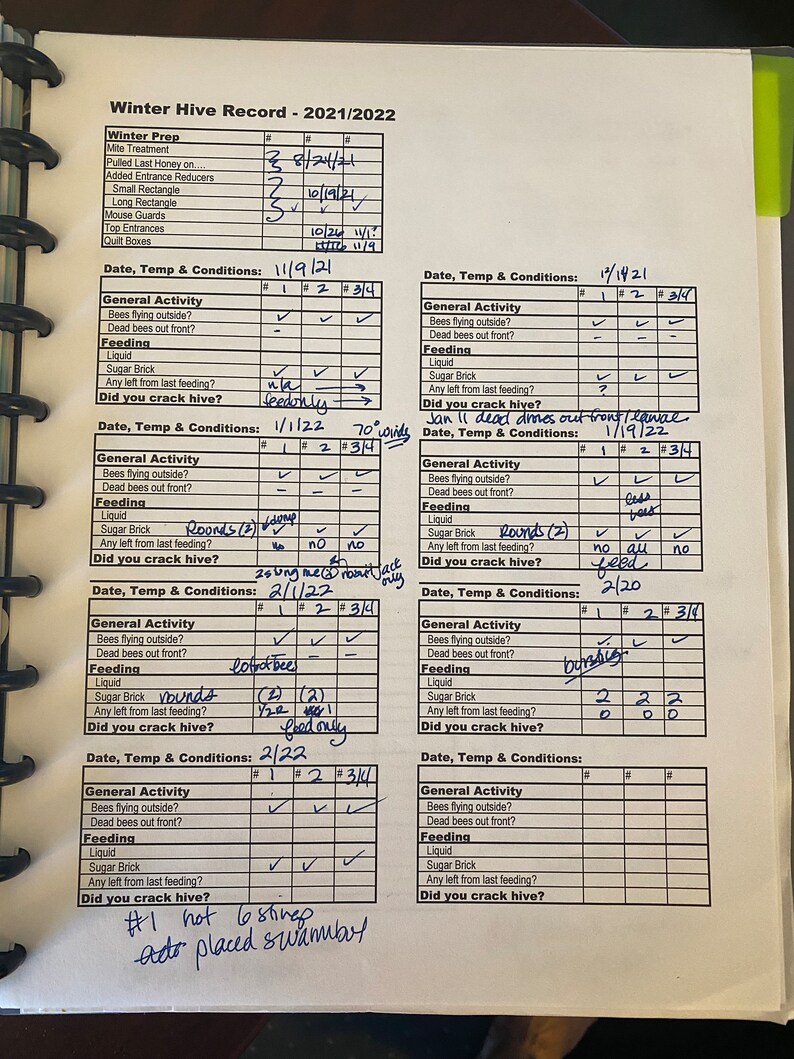 Winter Hive Record - 2021/2022
Winter Prep # # #
Mite Treatment
Pulled Last Honey on.... 8/24/21
Added Entrance Reducers
Small Rectangle 10/19/21
Long Rectangle ✓ ✓ ✓
Mouse Guards
Top Entrances 10/26 11/1?
Quilt Boxes 11/9
Date, Temp & Conditions: 11/9/21
# 1 # 2 # 3/4
General Activity
Bees flying outside? ✓ ✓ ✓
Dead bees out front? -
Feeding
Liquid
Sugar Brick ✓ ✓ ✓
Any left from last feeding? n/a →
Did you crack hive? feed only →
Date, Temp & Conditions:
# 1 # 2 # 3/4
General Activity
Bees flying outside? ✓ ✓ ✓
Dead bees out front? - - -
Feeding
Liquid
Sugar Brick ✓ ✓ ✓
Any left from last feeding? ?
Did you crack hive?
Date, Temp & Conditions: 1/1/22 70° windy
# 1 # 2 # 3/4
General Activity
Bees flying outside? ✓ ✓ ✓
Dead bees out front? - - -
Feeding
Liquid
Sugar Brick Rounds (2) ✓ ✓ ✓
Any left from last feeding? no no no
Did you crack hive?
Jan 11 dead drones out front / larvae
Date, Temp & Conditions: 1/19/22
# 1 # 2 # 3/4
General Activity
Bees flying outside? ✓ ✓ ✓
Dead bees out front? less
Feeding bees
Liquid
Sugar Brick Rounds (2) ✓ ✓ ✓
Any left from last feeding? no all no
Did you crack hive? feed
2 stung me jack
only
Date, Temp & Conditions: 2/1/22
# 1 # 2 # 3/4
General Activity
Bees flying outside? ✓ ✓ ✓
Dead bees out front? - - -
Feeding lot of bees
Liquid
Sugar Brick rounds (2) (2)
Any left from last feeding? 1
Did you crack hive? feed only
Date, Temp & Conditions: 2/20
# 1 # 2 # 3/4
General Activity
Bees flying outside? ✓ ✓ ✓
Dead bees out front?
Feeding
Liquid
Sugar Brick 2 2 2
Any left from last feeding? 0 0 0
Did you crack hive?
Date, Temp & Conditions: 2/22
# 1 # 2 # 3/4
General Activity
Bees flying outside? ✓ ✓ ✓
Dead bees out front?
Feeding
Liquid
Sugar Brick ✓ ✓ ✓
Any left from last feeding?
Did you crack hive? -
Date, Temp & Conditions:
# # #
General Activity
Bees flying outside?
Dead bees out front?
Feeding
Liquid
Sugar Brick
Any left from last feeding?
Did you crack hive?
#1 hot 6 stings
placed swarm box